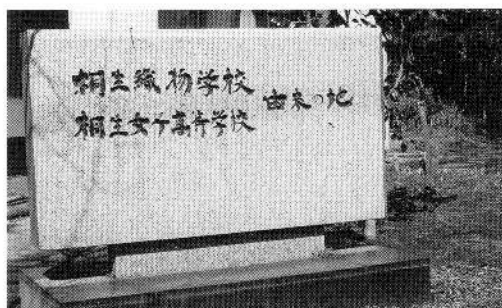 桐生織物学校
桐生女子高等学校
由来の地